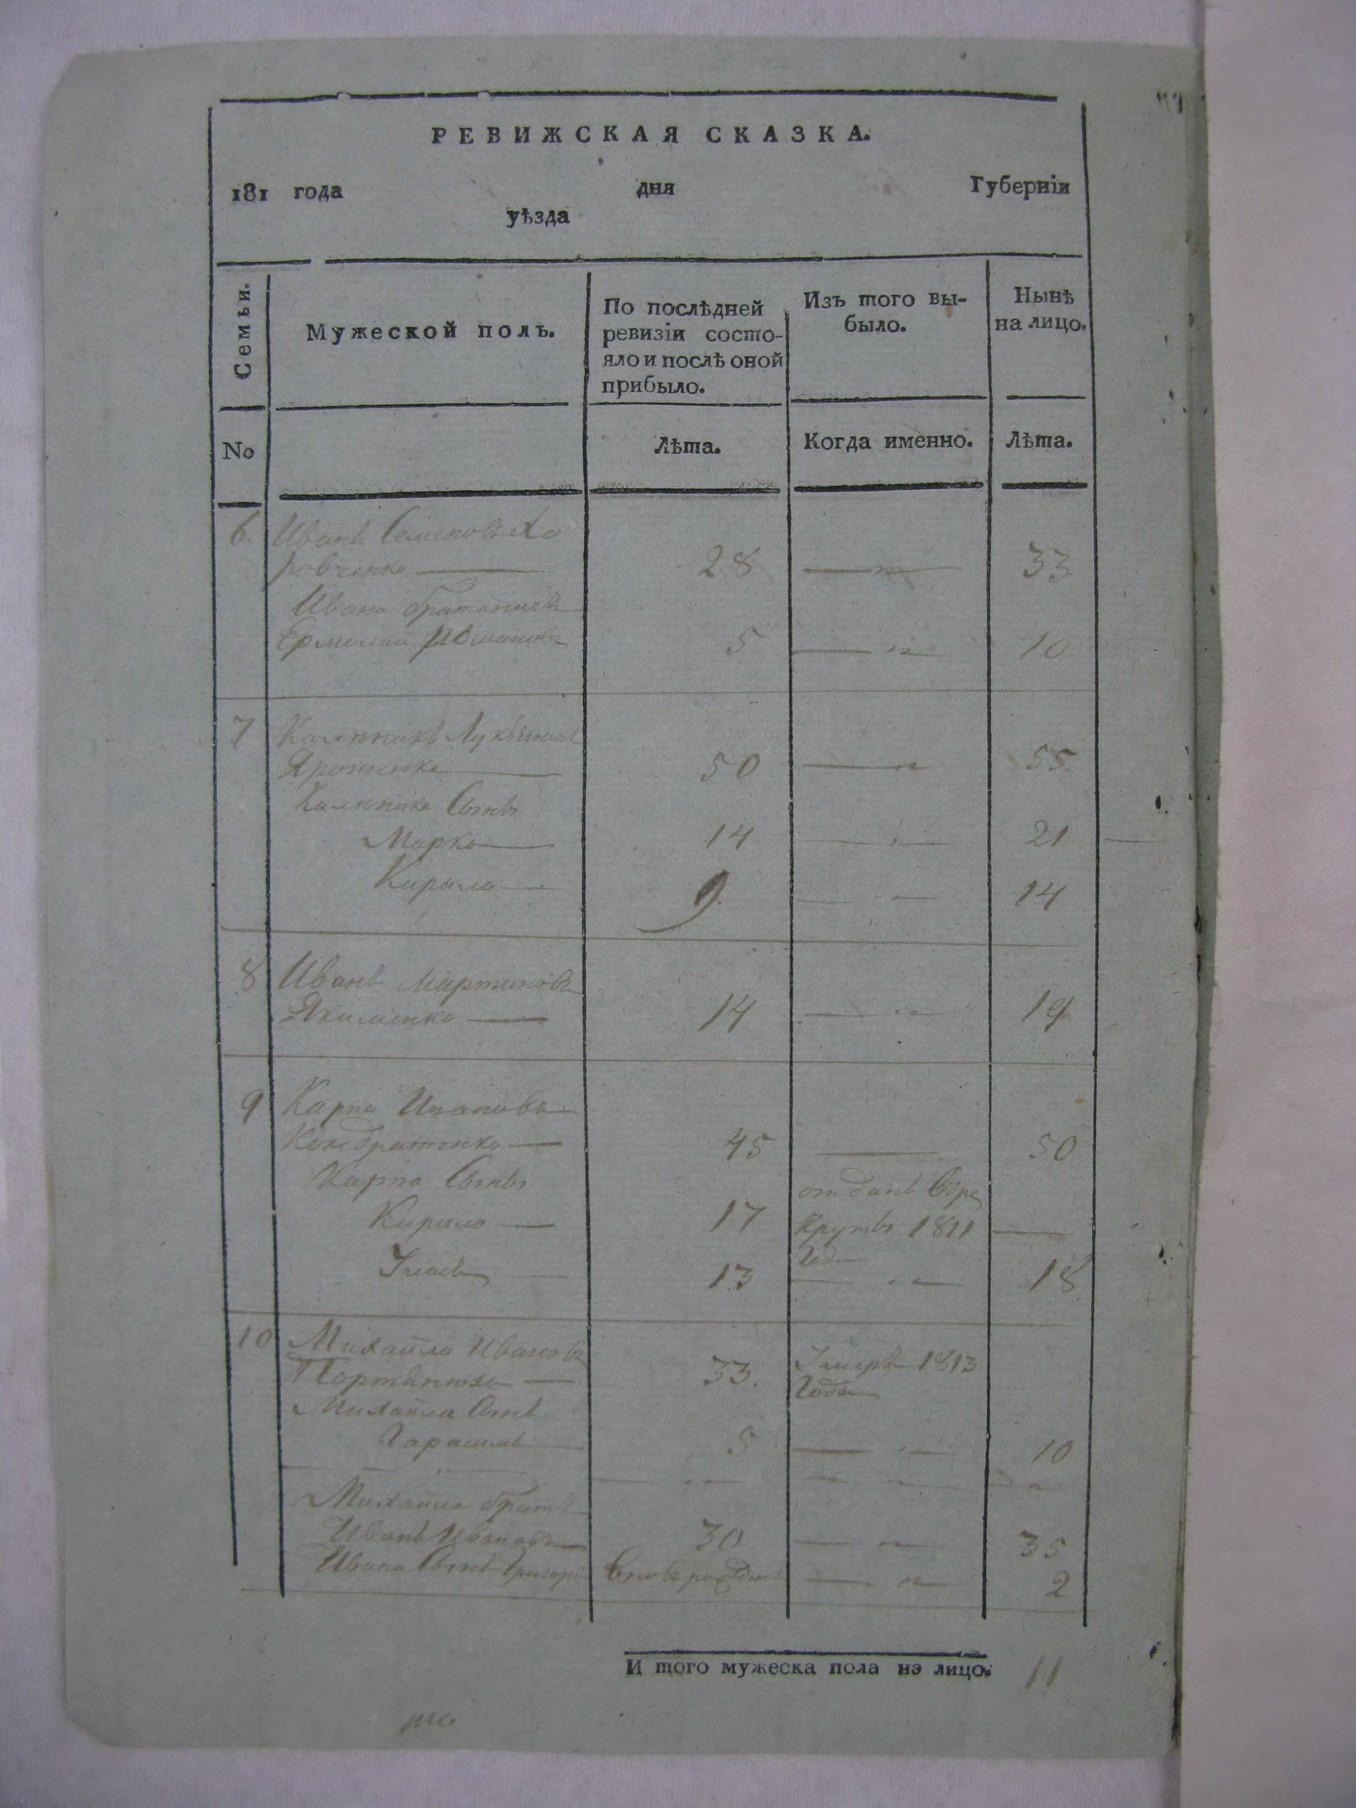 РЕВИЖСКАЯ СКАЗКА.
181 года дня Губерніи
уѣзда
Семьи.
Мужеской полъ.
По послѣдней
ревизіи состо-
яло и послѣ оной
прибыло.
Изъ того вы-
было.
Нынѣ
на лицо.
No
Лѣта.
Когда именно.
Лѣта.
6. Иванъ Семеновъ
28 33
Ивана братаничъ
Ермолай
5 10
7
50 55
Сынъ
Марко 14 21
Кирило 9. 14
8 Иванъ Мартиновъ
Якименко 14 19
9 Карпо
Кондратенко 45 50
Карпа Сынъ отданъ Врe
Кирило 17 круты 1811
Года
13 18
10 Михайло Ивановъ
33. Умеръ 1813
Года
Михайла Сынъ
Гарасимъ 5 10
Михайла братъ
Иванъ Ивановъ 30 35
Ивана Сынъ Григорій вновь рожденъ 2
И того мужеска пола на лицо. 11